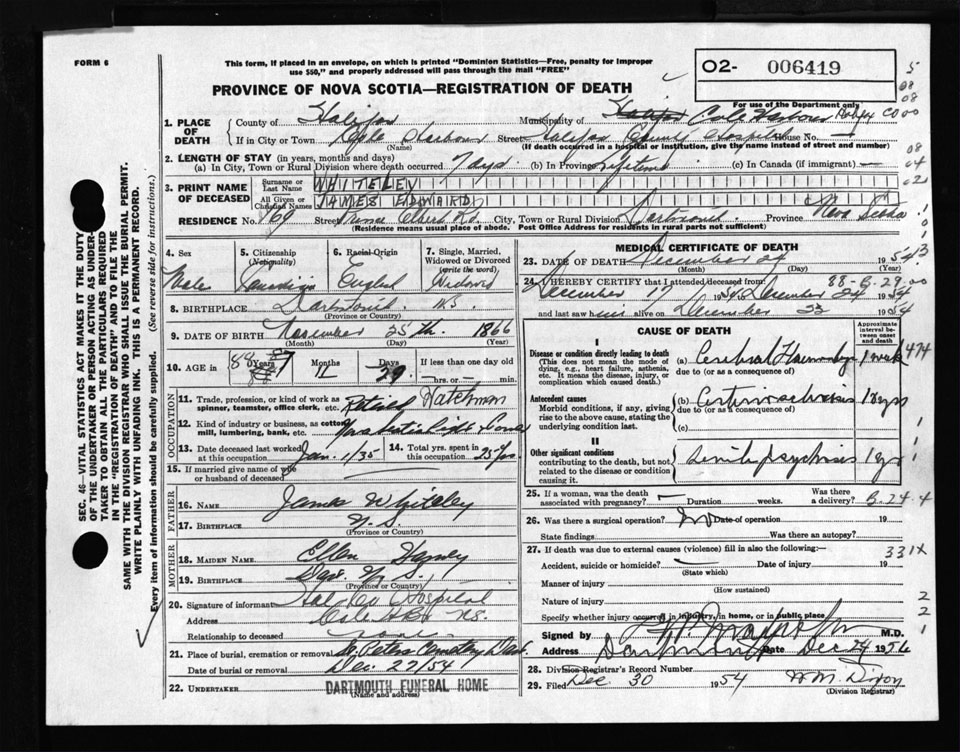 FORM 6
This form, if placed in an envelope, on which is printed "Dominion Statistics—Free, penalty for improper
use $50," and properly addressed will pass through the mail "FREE"
O2- 006419
PROVINCE OF NOVA SCOTIA—REGISTRATION OF DEATH
For use of the Department only
1. PLACE OF DEATH
County of Halifax Municipality of Halifax Cole Harbour
If in City or Town Cole Harbour Street Halifax County Hospital House No.
(Name) (If death occurred in a hospital or institution, give the name instead of street and number)
2. LENGTH OF STAY (in years, months and days)
(a) In City, Town or Rural Division where death occurred 7 days (b) In Province Lifetime (c) In Canada (if immigrant) —
3. PRINT NAME OF DECEASED
Surname or Last Name WHITELEY
All Given or Christian Names JAMES EDWARD
RESIDENCE No. 169 Street Prince Albert Rd. City, Town or Rural Division Dartmouth Province Nova Scotia
(Residence means usual place of abode. Post Office Address for residents in rural parts not sufficient)
4. Sex Male
5. Citizenship (Nationality) Canadian
6. Racial Origin English
7. Single, Married, Widowed or Divorced (write the word) Widowed
8. BIRTHPLACE Dartmouth N.S.
(Province or Country)
9. DATE OF BIRTH November 25th 1866
(Month) (Day) (Year)
10. AGE in 88 Years Months Days 29 If less than one day old
hrs. or min.
OCCUPATION
11. Trade, profession, or kind of work as spinner, teamster, office clerk, etc. Retired
12. Kind of industry or business, as cotton mill, lumbering, bank, etc.
13. Date deceased last worked at this occupation Jan. 1/35
14. Total yrs. spent in this occupation 25 yrs.
15. If married give name of wife or husband of deceased
FATHER
16. NAME James Whiteley
17. BIRTHPLACE N.S.
(Province or Country)
MOTHER
18. MAIDEN NAME Ellen
19. BIRTHPLACE Dar. N.S.
(Province or Country)
20. Signature of informant Hal. Co Hospital
Address Cole Hbr N.S.
Relationship to deceased none
21. Place of burial, cremation or removal St. Peters Cemetery Dart.
Date of burial or removal Dec. 27/54
22. UNDERTAKER DARTMOUTH FUNERAL HOME
(Name and address)
MEDICAL CERTIFICATE OF DEATH
23. DATE OF DEATH December 24 1954
(Month) (Day) (Year)
24. I HEREBY CERTIFY that I attended deceased from:
December 17 1954 December 24 1954
and last saw him alive on December 23 1954
CAUSE OF DEATH
Approximate interval between onset and death
I
Disease or condition directly leading to death
(This does not mean the mode of dying, e.g., heart failure, asthenia, etc. It means the disease, injury, or complication which caused death.)
(a) Cerebral Haemorrhage 1 week
due to (or as a consequence of)
Antecedent causes
Morbid conditions, if any, giving rise to the above cause, stating the underlying condition last.
(b) Arteriosclerosis
due to (or as a consequence of)
(c)
II
Other significant conditions
contributing to the death, but not related to the disease or condition causing it.
Senile psychosis 1 yr
25. If a woman, was the death associated with pregnancy? — Duration weeks. Was there a delivery?
26. Was there a surgical operation? No Date of operation 19
State findings Was there an autopsy?
27. If death was due to external causes (violence) fill in also the following:—
Accident, suicide or homicide? Date of injury 19
(State which)
Manner of injury
(How sustained)
Nature of injury
Specify whether injury occurred in industry, in home, or in public place
Signed by M.D.
Address Dartmouth Date Dec 24 1954
28. Division Registrar's Record Number
29. Filed Dec 30 1954 W.M. Dixon
(Division Registrar)
SEC. 46—VITAL STATISTICS ACT MAKES IT THE DUTY
OF THE UNDERTAKER OR PERSON ACTING AS UNDER-
TAKER TO OBTAIN ALL THE PARTICULARS REQUIRED
IN THE "REGISTRATION OF DEATH" AND TO FILE THE
SAME WITH THE DIVISION REGISTRAR WHO SHALL ISSUE THE BURIAL PERMIT.
WRITE PLAINLY WITH UNFADING INK. THIS IS A PERMANENT RECORD.
Every item of information should be carefully supplied. (See reverse side for instructions.)